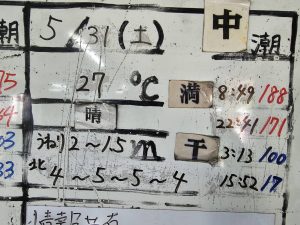 潮 5/31(土) 中潮
75 27℃ 満 8:49 188
晴 22:41 171
03 うねり2~15m 干 3:13 100
33 北 4~5~5~4 15:52 17